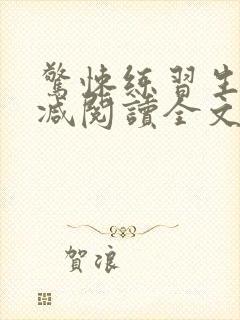 驚悚練習生
減閱讀全文
賀浪